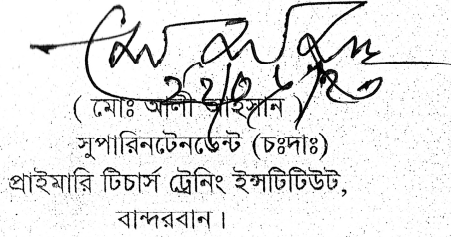 ( মোঃ আলী আহসান )
সুপারিনটেনডেন্ট (চঃদাঃ)
প্রাইমারি টিচার্স ট্রেনিং ইন্সটিটিউট,
বান্দরবান।